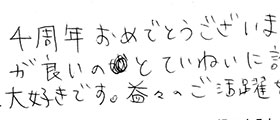 4周年おめでとうございま
が良いのとていねいに
大好きです。益々のご活躍